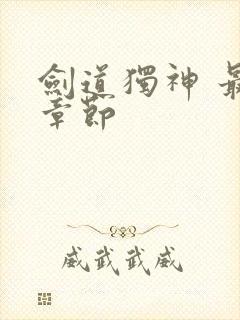 劍道獨神 最
章節
威武武威